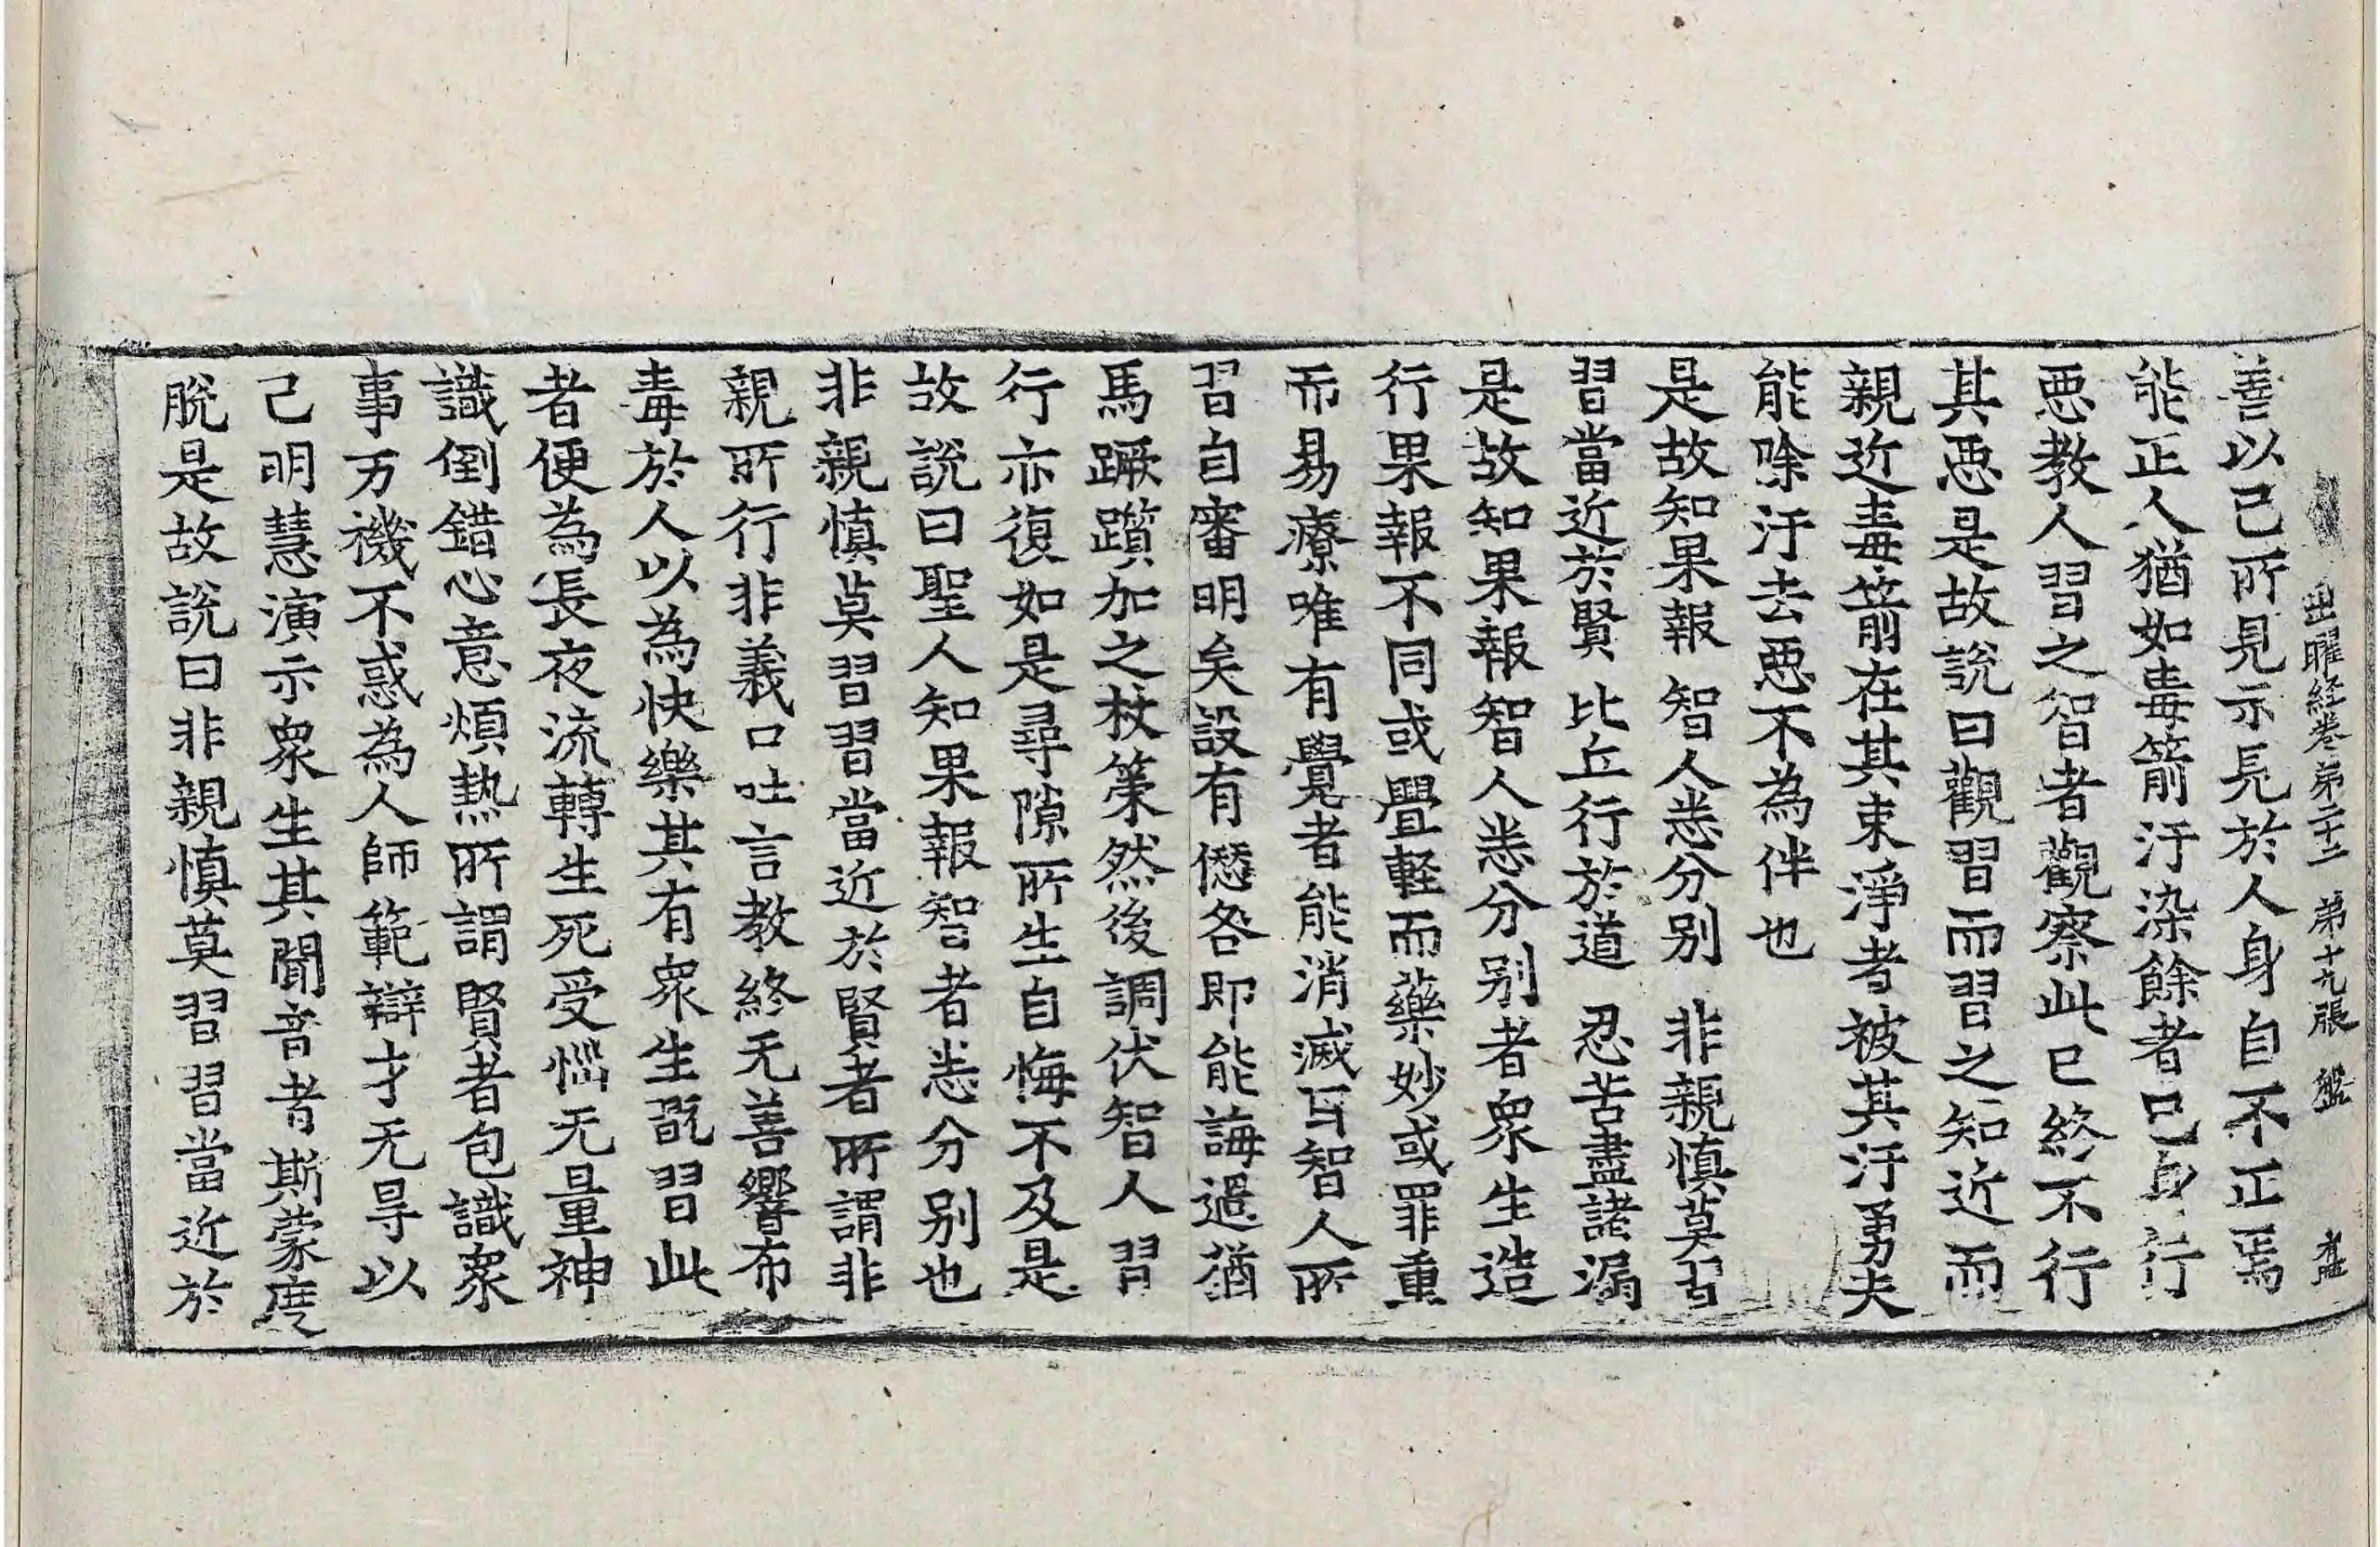 出曜経卷第二十二 第十九張 盤
善以己所見示長於人身自不正焉
能正人猶如毒箭汙染餘者己身行
惡教人習之智者觀察此已終不行
其惡是故說曰觀習而習之知近而
親近毒箭在其束淨者被其汙勇夫
能除汙去惡不為伴也
是故知果報 智人悉分別 非親慎莫習
習當近於賢 比丘行於道 忍苦盡諸漏
是故知果報智人悉分別者衆生造
行果報不同或疊軽而藥妙或罪重
而易療唯有覺者能消滅耳智人所
習自審明矣設有愆咎即能誨過猶
馬蹶躓加之杖策然後調伏智人習
行亦復如是尋隙所生自悔不及是
故說曰聖人知果報智者悉分別也
非親慎莫習習當近於賢者所謂非
親所行非義口吐言教終无善響布
毒於人以為快樂其有衆生翫習此
者便為長夜流轉生死受惱无量神
識倒錯心意煩熱所謂賢者包識衆
事万機不惑為人師範辯才无㝵以
己明慧演示衆生其聞音者斯蒙度
脫是故說曰非親慎莫習習當近於